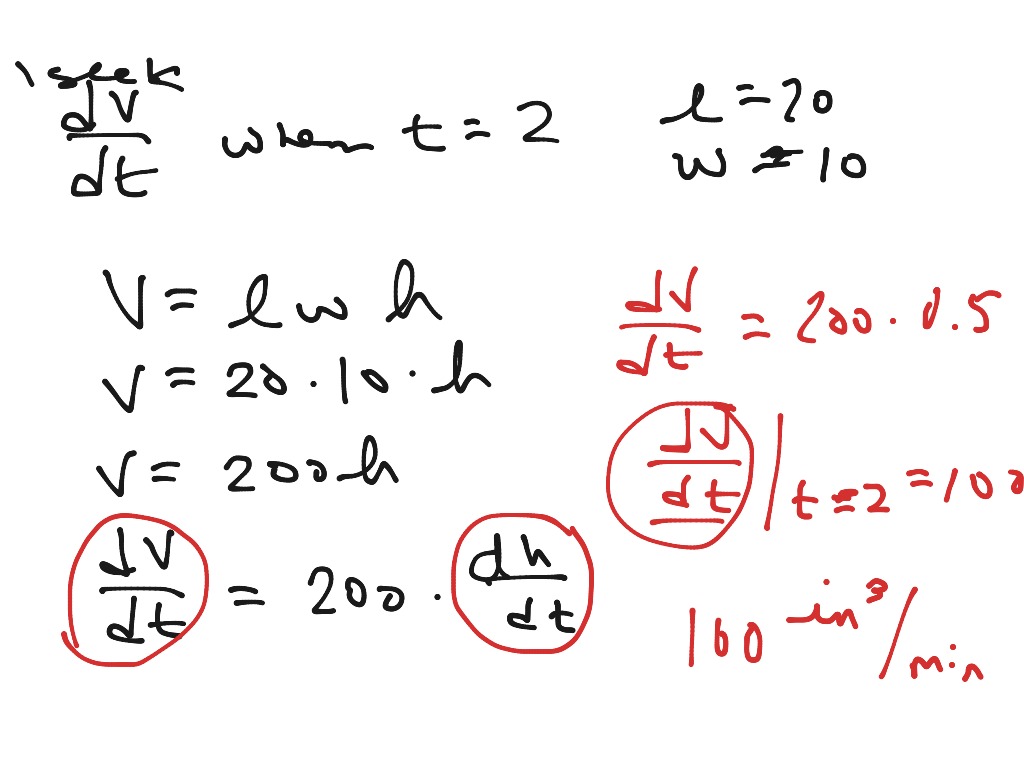 \ seek
dV/dt when t = 2
l = 20
w = 10
V = l w h
V = 20 · 10 · h
V = 200h
dV/dt = 200 · dh/dt
dV/dt = 200 · 0.5
dV/dt | t = 2 = 100
100 in³/min